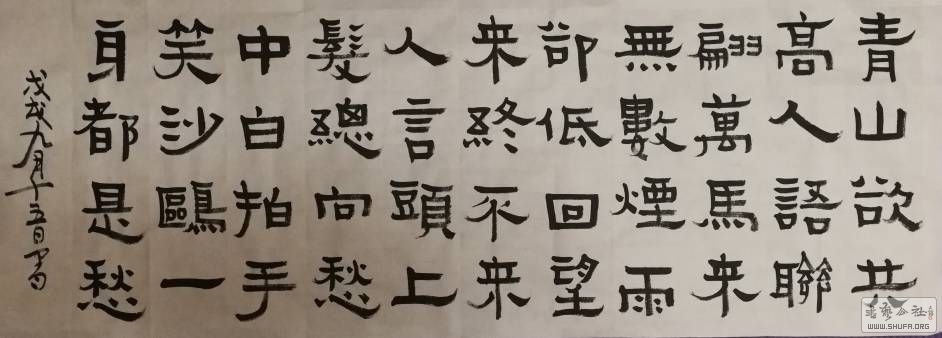 青山欲共
高人語聯
翩萬馬来
無數煙雨
卻低回望
来終不来
人言頭上
髮總向愁
中白拍手
笑沙鷗一
身都是愁
戊戌九月十五日書
書藝公社
WWW.SHUFA.ORG